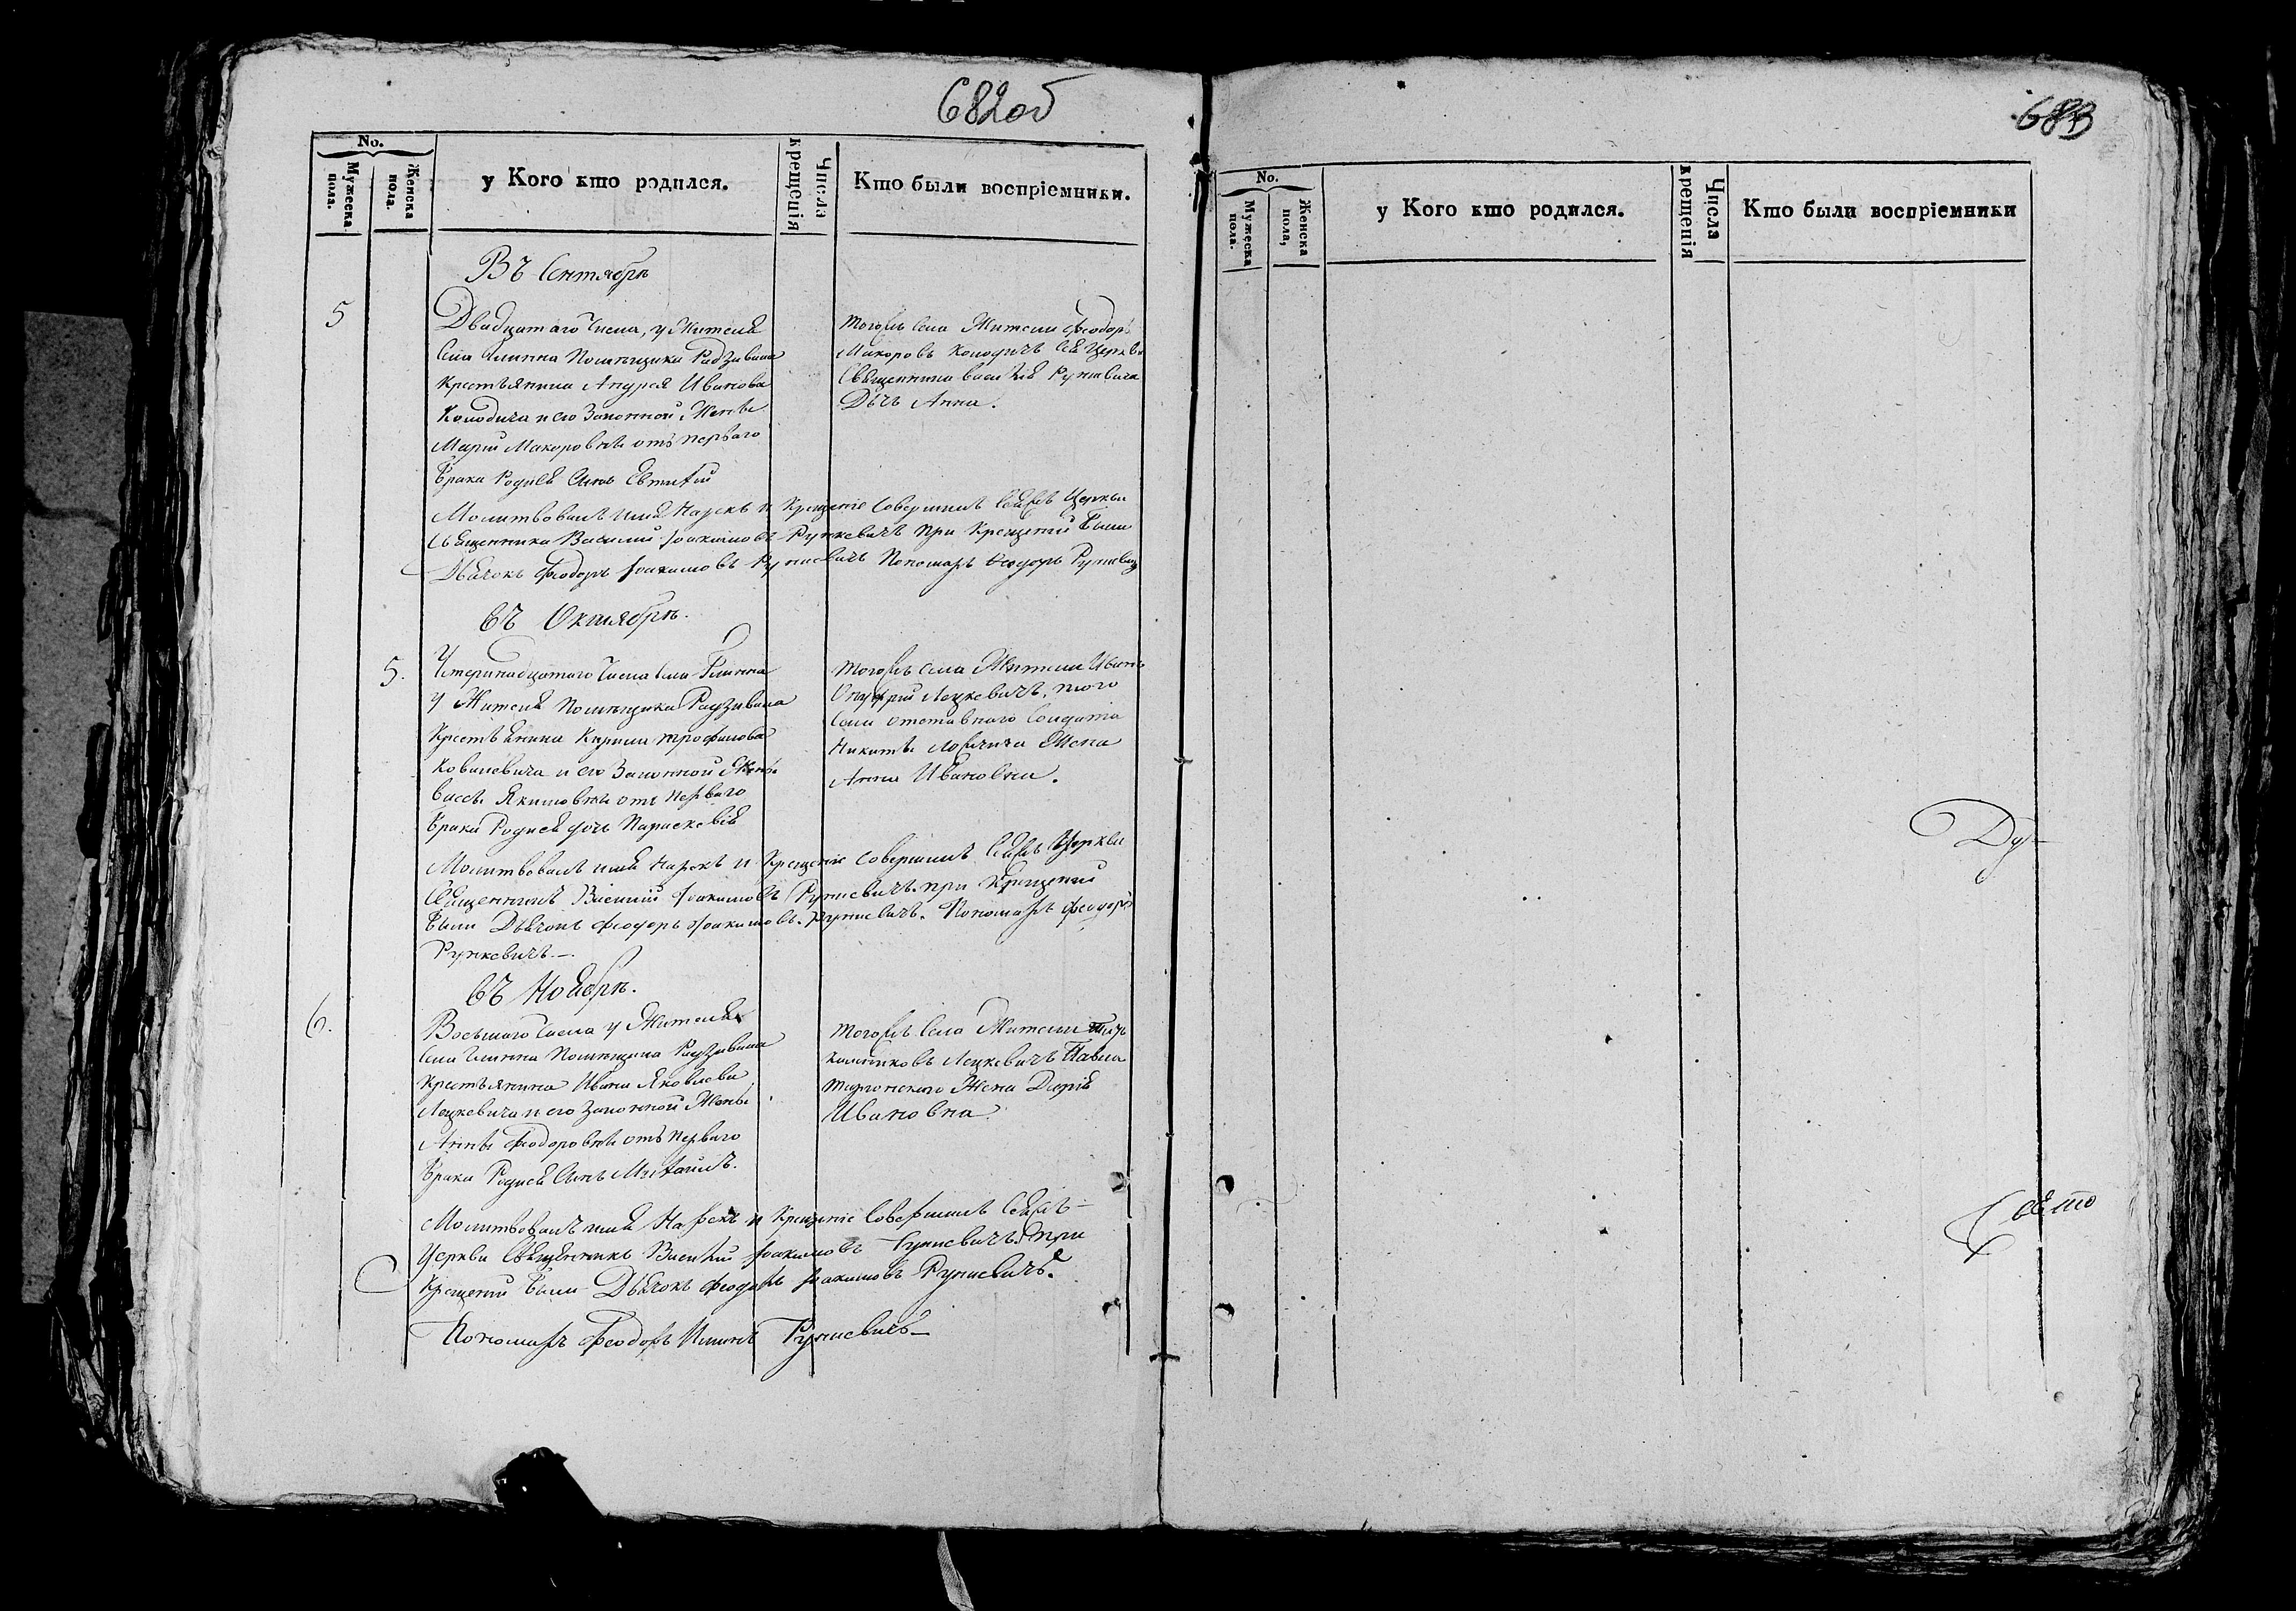 682об
No.
Мужеска пола.
Женска пола.
у Кого кто родился.
Числа крещенія
Кто были воспріемники.
Въ Сентябрѣ
5
Двадцатаго Числа, у Жителя
Села Глинна Помѣщика Радзивила
Крестьянина Андрея Иванова
Колодича и его Законной Женѣ
Маріи Макоровнѣ отъ перваго
брака Родился Сынъ Евтихій
Тогожъ Села Жители Феодоръ
Макоровъ Колодичъ Сея Церкви
Священника Василія Рункевича
Дочь Анна.
Молитвовалъ имя Нарекъ и Крещеніе Совершилъ Сеяжъ Церкви
Священника Василий Іоакимовъ Рункевичъ при Крещеніи были
Дьячокъ Феодоръ Іоакимовъ Рункевичъ Пономарь Феодоръ Рункевич
въ Октябрѣ.
5.
Четеринадцатаго Числа Села Глинна
у Жителя Помѣщика Радзивила
Крестьянина Кирила Трофимова
Ковалевича и его Законной Женѣ
Вассѣ Якимовнѣ отъ перваго
брака Родися дочь Параскевія
Тогожъ Села Жители Иванъ
Онуфрій Лецкевичъ, того
Села отставного Солдата
Никиты Жена
Анна Ивановна.
Молитвовалъ имя Нарекъ и Крещеніе Совершилъ Сеяжъ Церкви
Священникъ Василій Іоакимовъ Рункевичъ. при Крещеніи
были Дьячокъ Феодоръ Іоакимовъ. Рункевичъ. Пономарь Феодоръ
Рункевичъ.—
въ Ноябрѣ.
6.
Восьмаго Числа у Жителя
Села Глинна Помѣщика Радзивила
Крестьянина Ивана Яковлева
Лецкевича и его Законной Женѣ
Аннѣ Феодоровнѣ отъ перваго
брака Родися Сынъ Михаилъ.
Тогожъ Села Жители
Лецкевичъ Павла
Жена Дарія
Ивановна
Молитвовалъ имя Нарекъ и Крещеніе Совершилъ Сеяжъ—
Церкви Священникъ Василій Іоакимовъ Рункевичъ при
Крещеніи были Дьячокъ Феодоръ Іоакимовъ Рункевичъ.
Пономарь Феодоръ Рункевичъ—
683
No.
Мужеска пола.
Женска пола,
у Кого кто родился.
Числа крещенія
Кто были воспріемники
Ду—